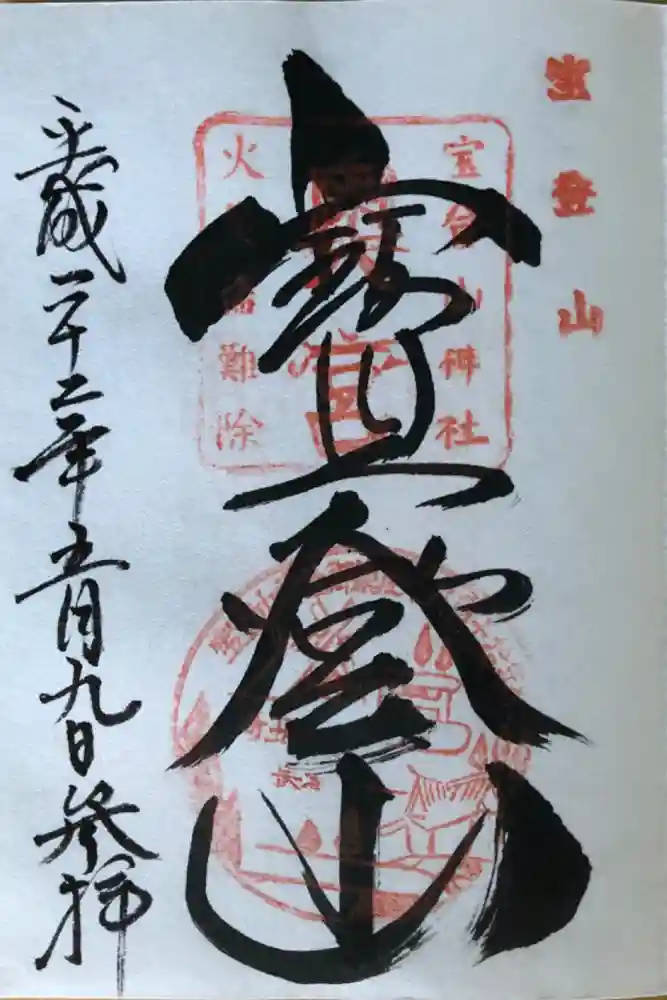 宝登山
寳登山
宝登山神社
火盗諸難除
平成二十二年五月九日参拝